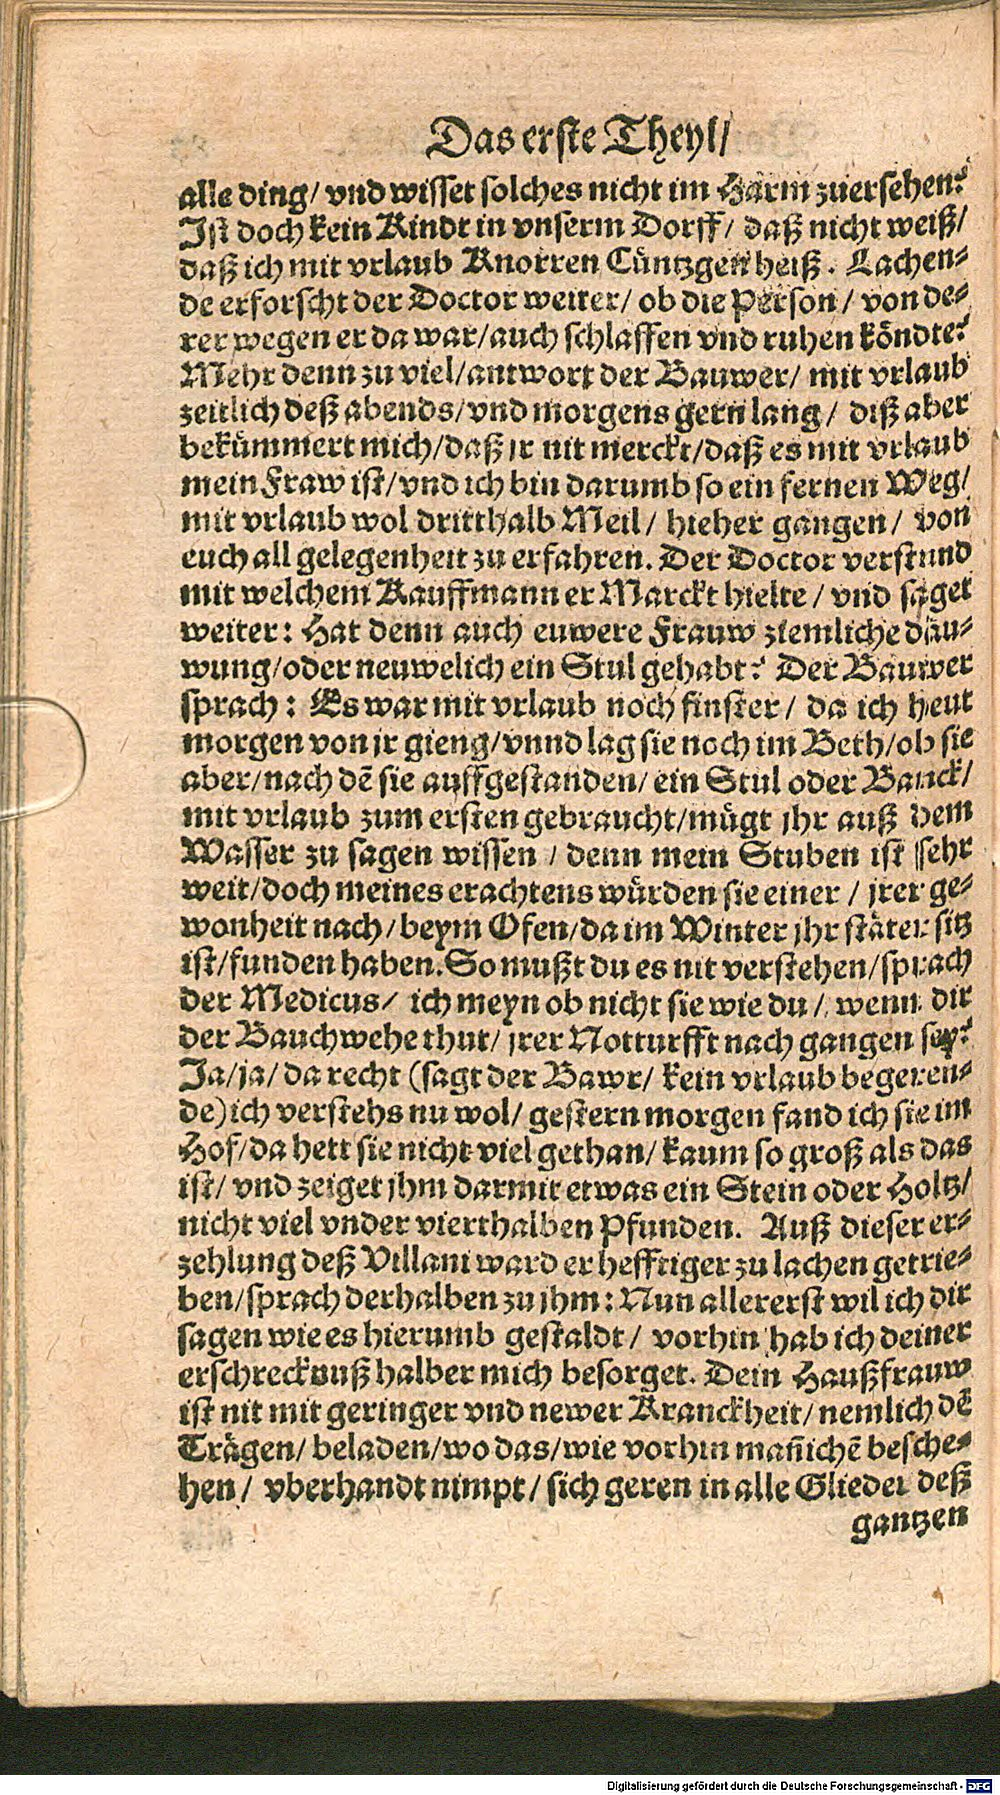 Das erste Theyl/
alle ding/ vnd wisset solches nicht im Harm zuersehen?
Ist doch kein Kindt in vnserm Dorff/ daß nicht weiß/
daß ich mit vrlaub Knorren Cüntzgen heiß. Lachen-
de erforscht der Doctor weiter/ ob die Person/ von de-
rer wegen er da war/ auch schlaffen vnd ruhen köndte?
Mehr denn zu viel/ antwort der Bauwer/ mit vrlaub
zeitlich deß abends/ vnd morgens gern lang/ diß aber
bekümmert mich/ daß jr nit merckt/ daß es mit vrlaub
mein Fraw ist/ vnd ich bin darumb so ein fernen Weg/
mit vrlaub wol dritthalb Meil/ hieher gangen/ von
euch all gelegenheit zu erfahren. Der Doctor verstund
mit welchem Kauffmann er Marckt hielte/ vnd saget
weiter: Hat denn auch euwere Frauw ziemliche däu-
wung/ oder neuwelich ein Stul gehabt? Der Bauwer
sprach: Es war mit vrlaub noch finster/ da ich heut
morgen von jr gieng/ vnnd lag sie noch im Beth/ ob sie
aber/ nach dē sie auffgestanden/ ein Stul oder Banck/
mit vrlaub zum ersten gebraucht/ mügt jhr auß dem
Wasser zu sagen wissen/ denn mein Stuben ist sehr
weit/ doch meines erachtens würden sie einer/ jrer ge-
wonheit nach/ beym Ofen/ da im Winter jhr stäter sitz
ist/ funden haben. So mußt du es nit verstehen/ sprach
der Medicus/ ich meyn ob nicht sie wie du/ wenn dir
der Bauch wehe thut/ jrer Notturfft nach gangen sey?
Ja/ ja/ da recht (sagt der Bawr/ kein vrlaub begeren-
de) ich verstehs nu wol/ gestern morgen fand ich sie im
Hof/ da hett sie nicht viel gethan/ kaum so groß als das
ist/ vnd zeiget jhm darmit etwas ein Stein oder Holtz/
nicht viel vnder vierthalben Pfunden. Auß dieser er-
zehlung deß Villani ward er hefftiger zu lachen getrie-
ben/ sprach derhalben zu jhm: Nun allererst wil ich dir
sagen wie es hierumb gestaldt/ vorhin hab ich deiner
erschrecknuß halber mich besorget. Dein Haußfrauw
ist nit mit geringer vnd newer Kranckheit/ nemlich dē
Trägen/ beladen/ wo das/ wie vorhin mañichē besche-
hen/ vberhandt nimpt/ sich geren in alle Glieder deß
gantzen
Digitalisierung gefördert durch die Deutsche Forschungsgemeinschaft - DFG